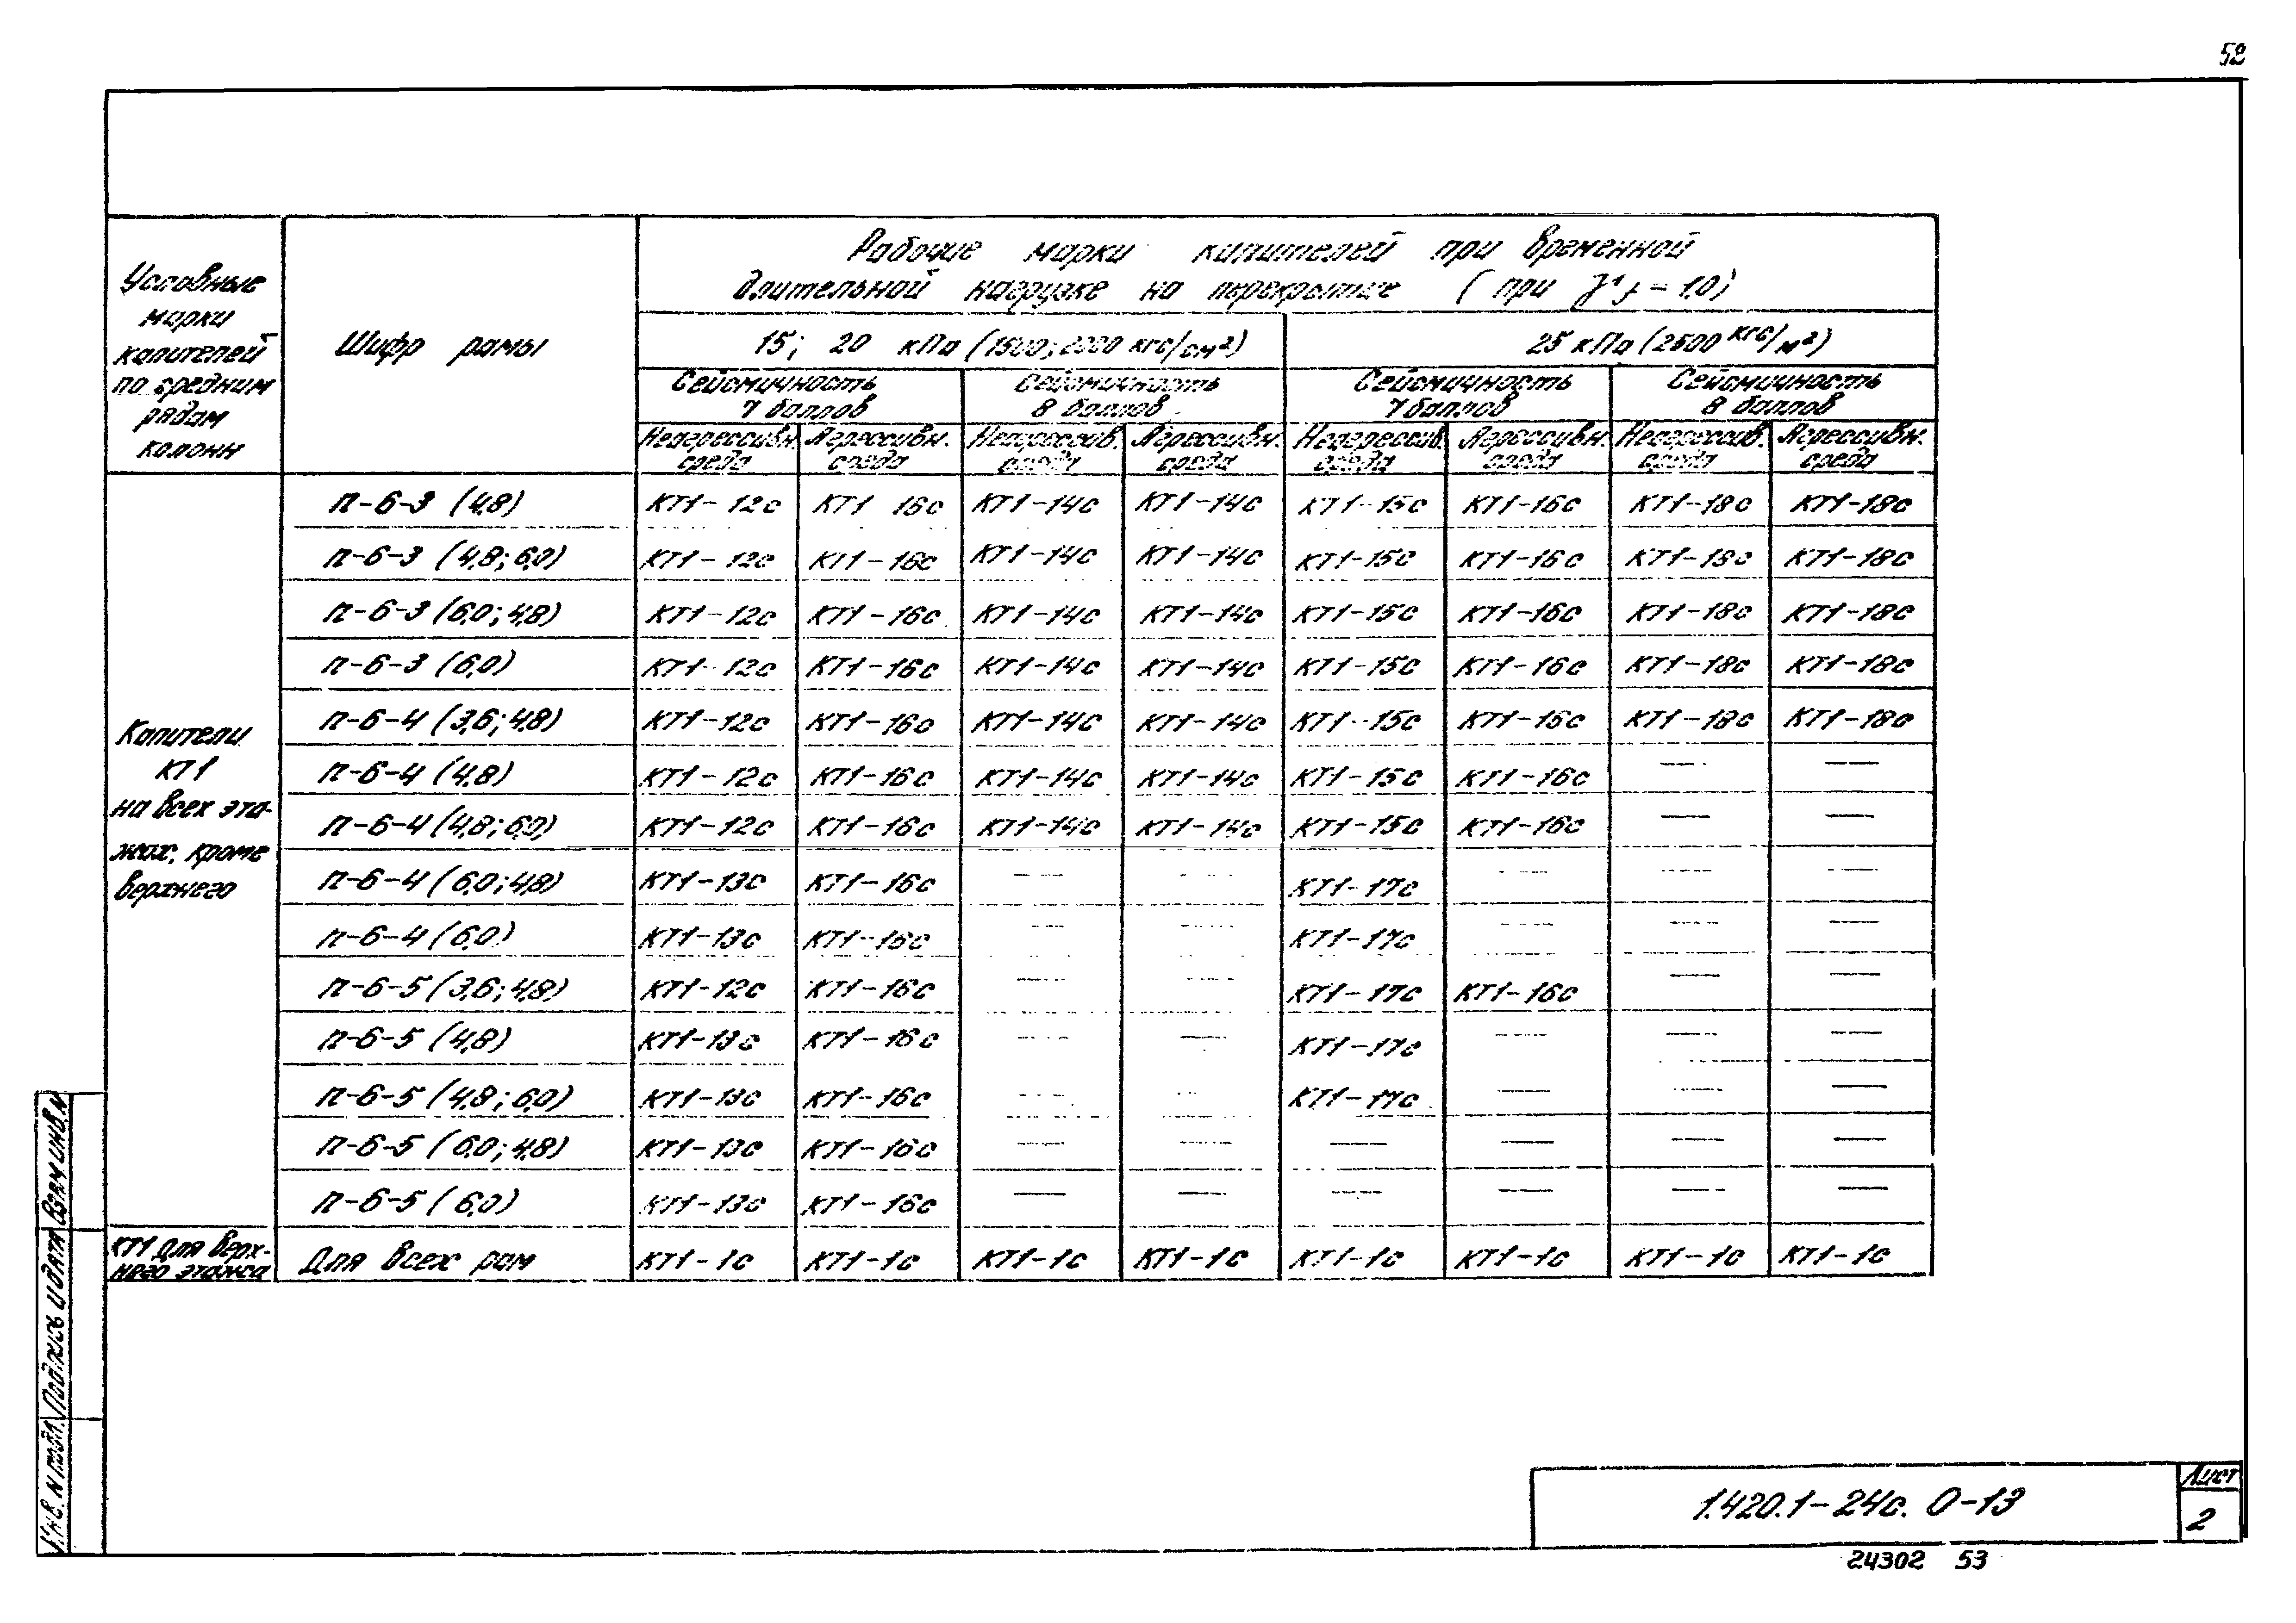 52
Рабочие марки капителей при временной
длительной нагрузке на перекрытие (при γf = 1,0)
Условные
марки
капителей
по средним
рядам
колонн
Шифр рамы
15; 20 кПа (1500; 2000 кгс/см²) 25 кПа (2500 кгс/м²)
Сейсмичность 7 баллов Сейсмичность 8 баллов Сейсмичность 7 баллов Сейсмичность 8 баллов
Неагрессивн. среда Агрессивн. среда Неагрессив. среда Агрессивн. среда Неагрессив. среда Агрессивн. среда Неагрессив. среда Агрессивн. среда
Капители
КТ1
на всех эта-
жах, кроме
верхнего
П-6-3 (4,8) КТ1-12с КТ1 16с КТ1-14с КТ1-14с КТ1-15с КТ1-16с КТ1-18с КТ1-18с
П-6-3 (4,8; 6,0) КТ1-12с КТ1-16с КТ1-14с КТ1-14с КТ1-15с КТ1-16с КТ1-18с КТ1-18с
П-6-3 (6,0; 4,8) КТ1-12с КТ1-16с КТ1-14с КТ1-14с КТ1-15с КТ1-16с КТ1-18с КТ1-18с
П-6-3 (6,0) КТ1-12с КТ1-16с КТ1-14с КТ1-14с КТ1-15с КТ1-16с КТ1-18с КТ1-18с
П-6-4 (3,6; 4,8) КТ1-12с КТ1-16с КТ1-14с КТ1-14с КТ1-15с КТ1-16с КТ1-18с КТ1-18с
П-6-4 (4,8) КТ1-12с КТ1-16с КТ1-14с КТ1-14с КТ1-15с КТ1-16с — —
П-6-4 (4,8; 6,0) КТ1-12с КТ1-16с КТ1-14с КТ1-14с КТ1-15с КТ1-16с — —
П-6-4 (6,0; 4,8) КТ1-13с КТ1-16с — — КТ1-17с — — —
П-6-4 (6,0) КТ1-13с КТ1-16с — — КТ1-17с — — —
П-6-5 (3,6; 4,8) КТ1-12с КТ1-16с — — КТ1-17с КТ1-16с — —
П-6-5 (4,8) КТ1-13с КТ1-16с — — КТ1-17с — — —
П-6-5 (4,8; 6,0) КТ1-13с КТ1-16с — — КТ1-17с — — —
П-6-5 (6,0; 4,8) КТ1-13с КТ1-16с — — — — — —
П-6-5 (6,0) КТ1-13с КТ1-16с — — — — — —
КТ1 для верх-
него этажа
Для всех рам КТ1-1с КТ1-1с КТ1-1с КТ1-1с КТ1-1с КТ1-1с КТ1-1с КТ1-1с
Инв. N подл. Подпись и дата Взам инв. N
1.420.1-24с. 0-13
Лист
2
24302 53